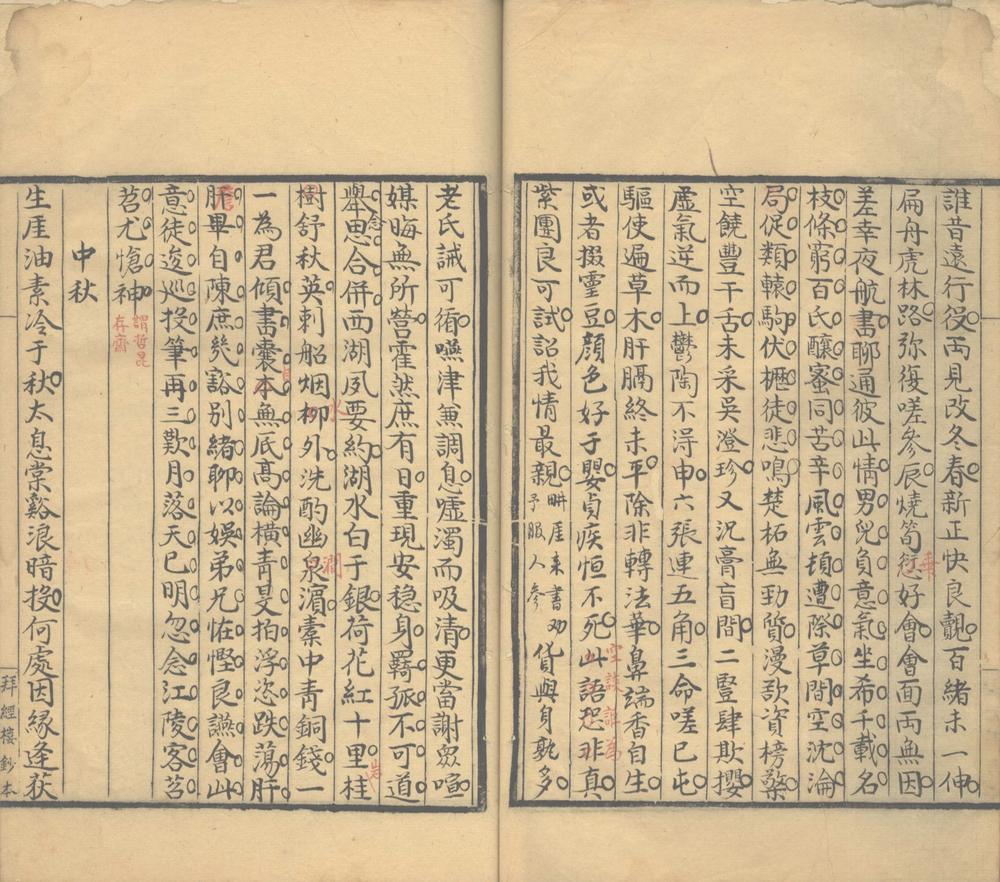 誰昔遠行役兩見改冬春新正快良覿百緒未一伸
扁舟虎林路弥復嗟參辰燒筍愆好會會面兩無因
差幸夜航書聊通彼此情男兒負意氣坐希千載名
枝條窮百氏釀蜜同苦辛風雲頓遭際草間空沈淪
局促類轅駒伏櫪徒悲鳴楚柘無勁質漫欬資榜檠
空饒豐干舌未采吳澄珍又況膏肓間二豎肆欺攖
虛氣逆而上鬱陶不淂申六張連五角三命嗟已屯
驅使遍草木肝膈終未平除非轉法華鼻端香自生
或者掇靈豆顏色好于嬰貞疾恒不死此語恐非真
紫團良可試詔我情最親耕厓来書劝予服人參貨與身孰多
老氏誡可循嚥津兼調息嘘濁而吸清更當謝眾喧
媒晦無所營霍然庶有日重現安穩身羇孤不可道
舉思合併西湖夙要約湖水白于銀荷花紅十里桂
念
樹舒秋英刺船烟柳外洗酌幽泉濵橐中青銅錢一
水
澗
一為君傾書囊本無底高論橫青旻拍浮恣跌蕩肝
肝畢自陳庶幾豁別緒聊以娛弟兄恠慳良讌會此
意徒逡巡投筆再三歎月落天已明忽念江陵客苕
苕尤愴神
謂哲昆
存齋
中秋
生厓油素冷于秋太息棠谿浪暗投何處因緣逢荻
拜經樓鈔本